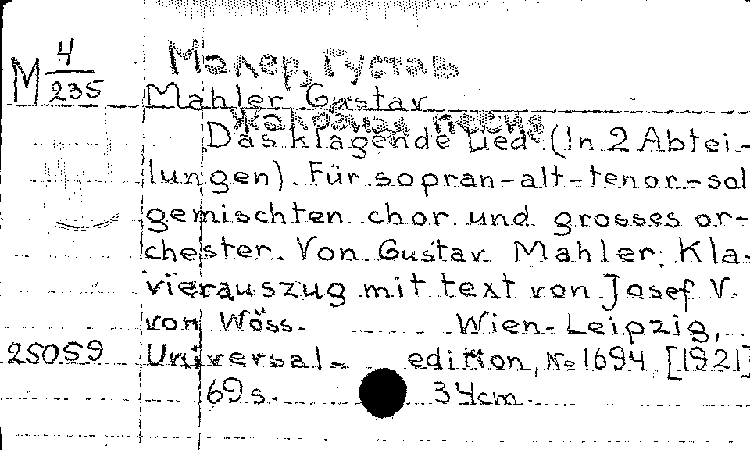 M 4/235
Малер, Густав
Mahler Gustav
Жалобная песня
Das klagende Lied. (In 2 Abtei-
lungen). Für sopran-alt-tenor-sol
gemischten chor und grosses or-
chester. Von Gustav Mahler. Kla-
vierauszug mit text von Josef V.
von Wöss. Wien-Leipzig,
25059 Universal-edition, № 1694 [1921]
69 s. 34cm.